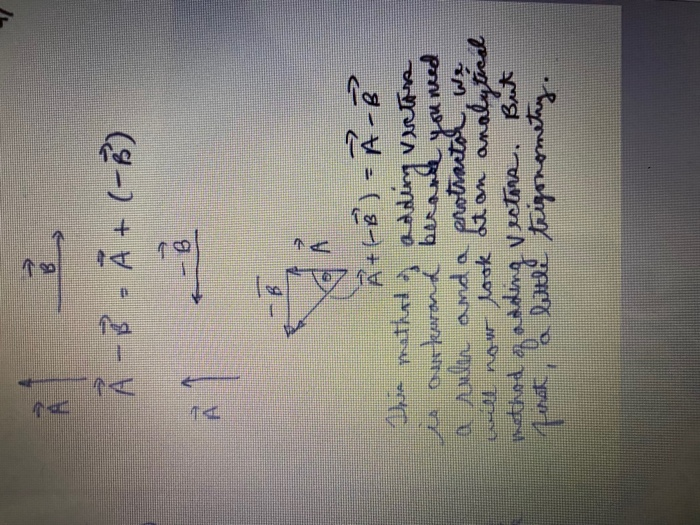 A⃗ B⃗
A⃗ - B⃗ = A⃗ + (-B⃗)
A⃗ -B⃗
-B⃗
θ A⃗
A⃗ + (-B⃗) = A⃗ - B⃗
This method of adding vectors
is awkward because you need
a ruler and a protractor. We
will now look at an analytical
method of adding vectors. But
first, a little trigonometry.